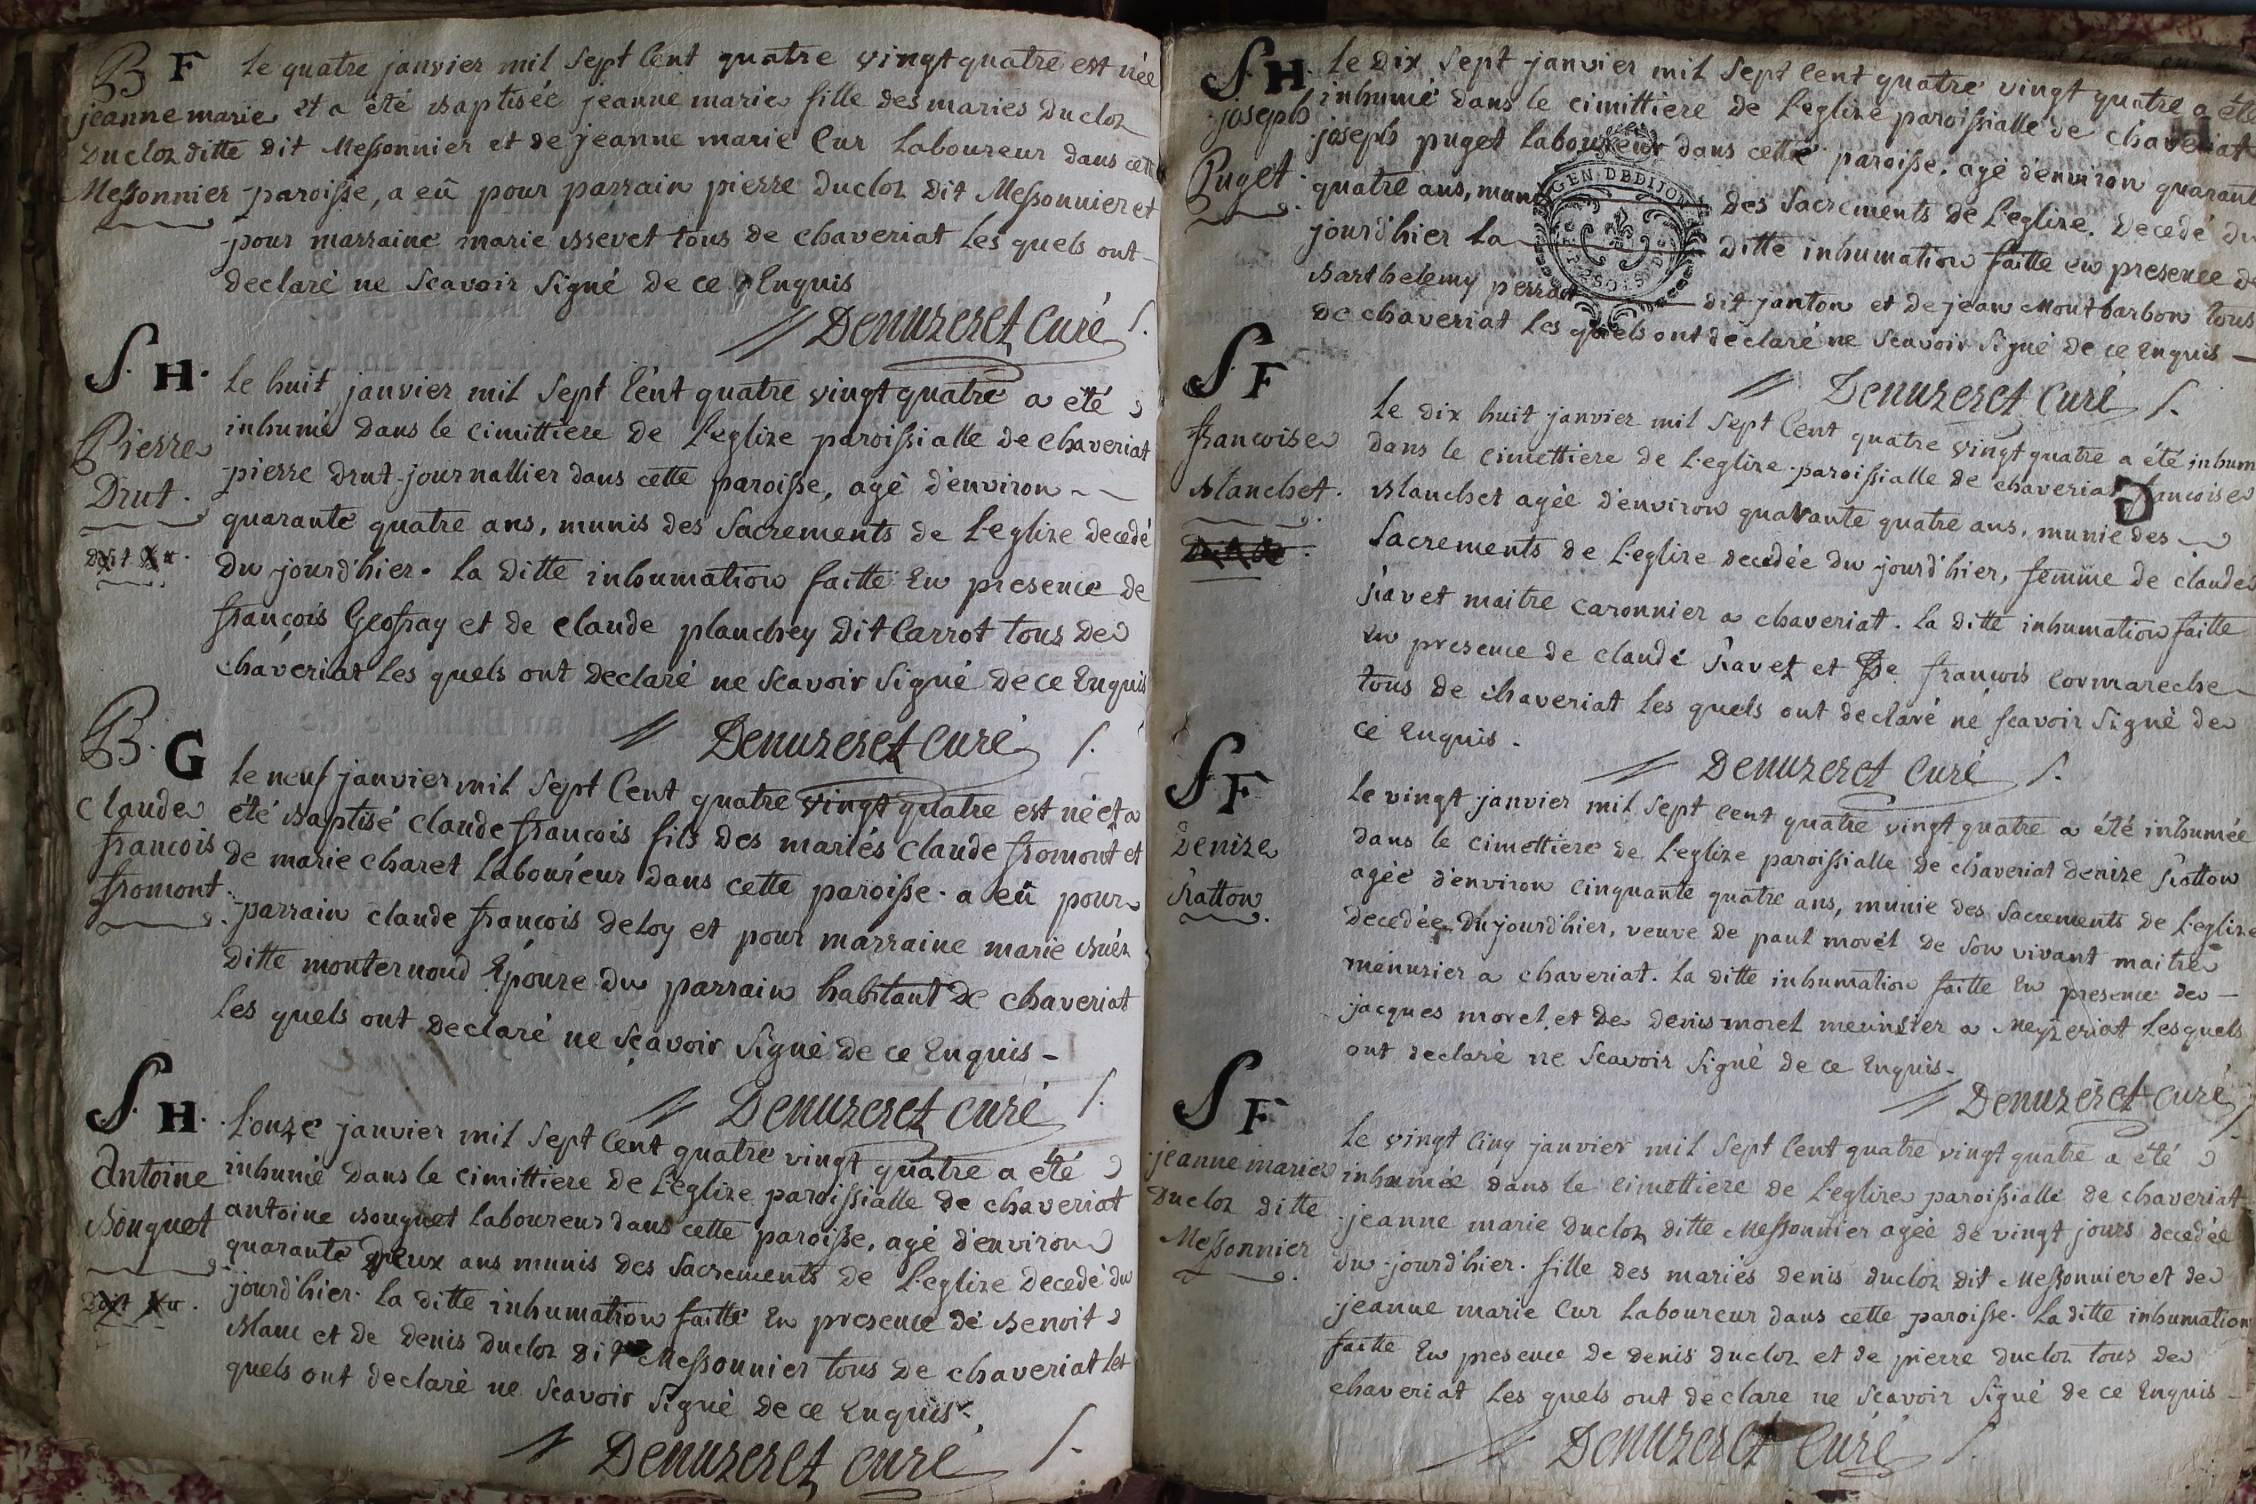 B F
jeanne marie
Ducloz ditte
Messonnier
Le quatre janvier mil Sept Cent quatre vingt quatre est née
et a été Baptisée jeanne marie fille des maries Ducloz
dit Messonnier et de jeanne marie Cur Laboureur dans cette
paroisse, a eû pour parrain pierre Ducloz dit Messonnier et
pour marraine marie Bsevet tous de chaveriat Les quels ont
declaré ne Scavoir Signé de ce Enquis
Denuzeret Curé
S. H.
Pierre
Drut.
Le huit janvier mil Sept Cent quatre vingt quatre a été
inhumé dans le cimittiere de L'eglize paroissialle de chaveriat
pierre Drut journallier dans cette paroisse, agé d'environ
quarante quatre ans, munis des Sacrements de L'eglize decedé
du jourd'hier. La ditte inhumation faitte En presence de
françois Geofray et de claude planchey dit Carrot tous de
chaveriat Les quels ont declaré ne Scavoir Signé de ce Enquis
Denuzeret Curé
B. G
Claude
francois
fromont.
Le neuf janvier mil Sept Cent quatre vingt quatre est né et a
été Baptisé claude francois fils des mariés claude fromont et
de marie charet Laboureur dans cette paroisse. a eû pour
parrain claude francois deloy et pour marraine marie Buéz
ditte monternoud Epouze du parrain habitant de chaveriat
Les quels ont declaré ne Scavoir Signé de ce Enquis
Denuzeret Curé
S. H.
Antoine
Bouquet
L'onze janvier mil Sept Cent quatre vingt quatre a été
inhumé dans le cimittiere de L'eglize paroissialle de chaveriat
antoine Bouquet laboureur dans cette paroisse, agé d'environ
quarante Deux ans munis des Sacrements de L'eglize decedé du
jourd'hier. La ditte inhumation faitte En presence de Benoit
Blanc et de Denis Ducloz dit Messonnier tous de chaveriat Les
quels ont declaré ne Scavoir Signé de ce Enquis.
Denuzeret Curé
S. H.
joseph
Puget.
Le dix Sept janvier mil Sept Cent quatre vingt quatre a été
inhumé dans le cimittiere de L'eglize paroissialle de chaveriat
joseph puget Laboureur dans cette paroisse. agé d'environ quarante
quatre ans, munis des Sacrements de L'eglize. decedé du
jourd'hier La ditte inhumation faitte en presence de
Barthelemy perrat dit janton et de jean Montbarbon tous
de chaveriat Les quels ont declaré ne Scavoir Signé de ce Enquis
GEN. DE DIJON
Denuzeret Curé
S F
francoise
Blanchet.
Le dix huit janvier mil Sept Cent quatre vingt quatre a été inhum
dans le cimettiere de L'eglize paroissialle de chaveriat francoise
Blanchet agée d'environ quarante quatre ans, munie des
Sacrements de L'eglize decedée du jourd'hier, femme de claude
Ravet maitre caronnier a chaveriat. La ditte inhumation faitte
en presence de claude Ravet et De françois cormareche
tous de chaveriat Les quels ont declaré ne Scavoir Signé de
ce Enquis.
G
Denuzeret Curé
S F
Denize
Ratton.
Le vingt janvier mil Sept Cent quatre vingt quatre a été inhumée
dans le cimettiere de L'eglize paroissialle de chaveriat denize Ratton
agée d'environ cinquante quatre ans, munie des Sacrements de L'eglize
decedée du jourd'hier, veuve de paul morel de Son vivant maitre
menuzier a chaveriat. La ditte inhumation faitte En presence de
jacques morel, et de denis morel meunster a Meyzeriat Lesquels
ont declaré ne Scavoir Signé de ce Enquis.
Denuzeret Curé
S F
jeanne marie
Ducloz ditte
Messonnier
Le vingt Cinq janvier mil Sept Cent quatre vingt quatre a été
inhumée dans le cimettiere de L'eglize paroissialle de chaveriat
jeanne marie Ducloz ditte Messonnier agée de vingt jours decedée
du jourd'hier. fille des mariés denis ducloz dit Messonnier et de
jeanne marie Cur Laboureur dans cette paroisse. La ditte inhumation
faitte En presence de denis ducloz et de pierre ducloz tous de
chaveriat Les quels ont declare ne Scavoir Signé de ce Enquis
Denuzeret Curé